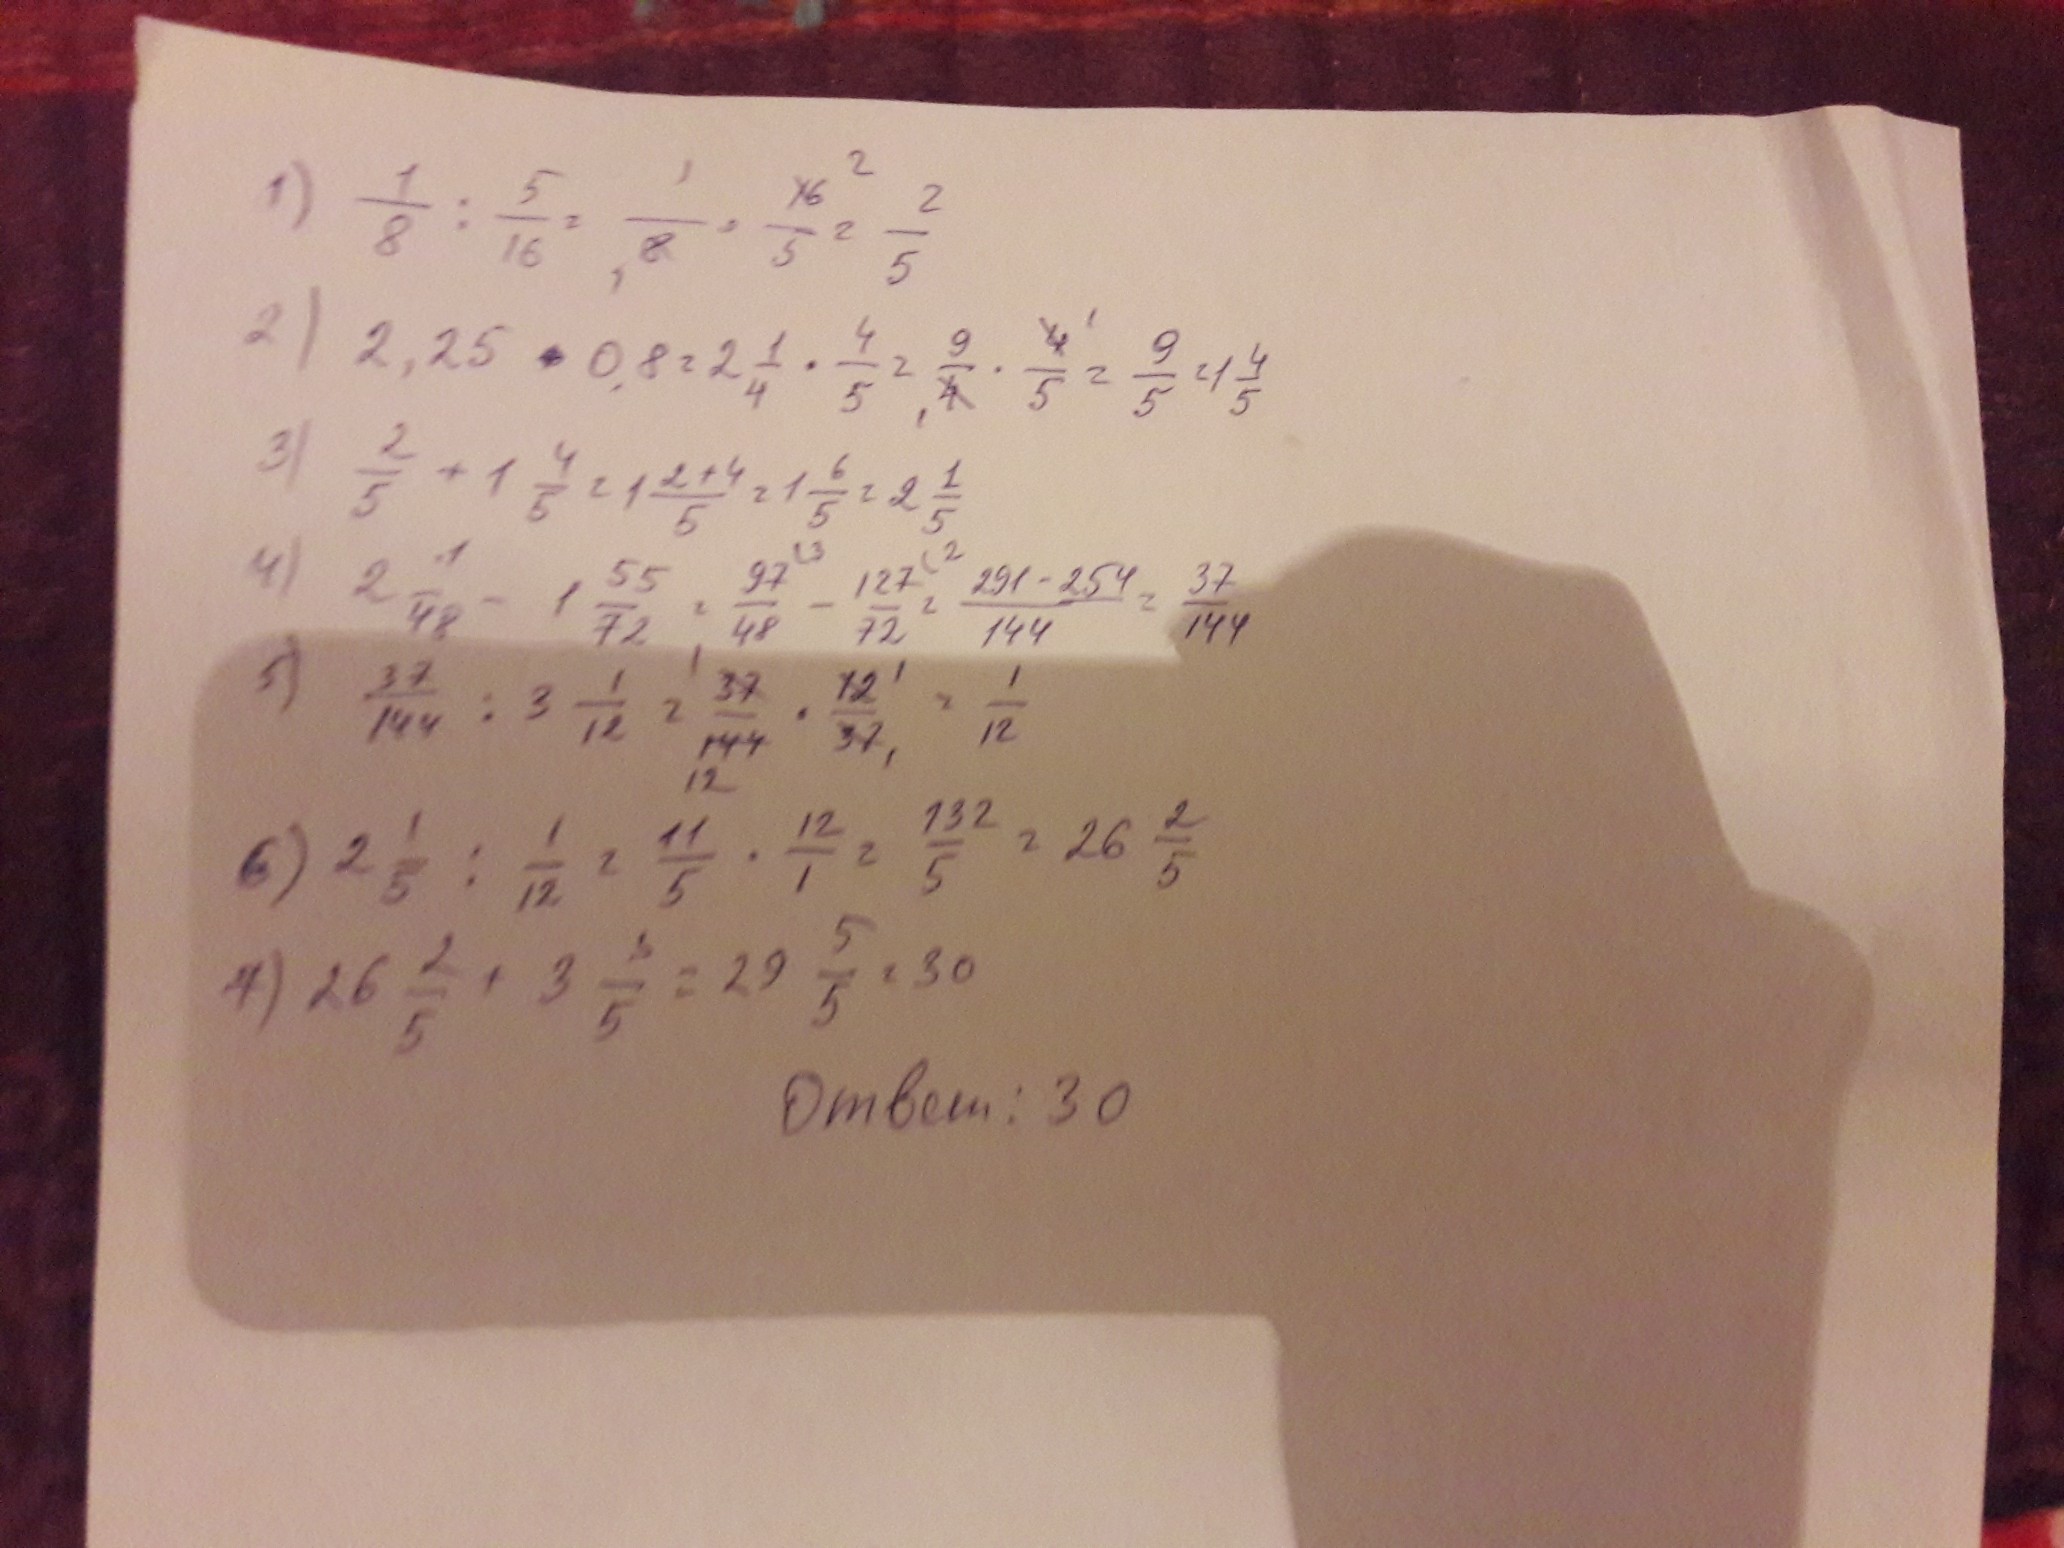 1) 1/8 : 5/16 = 1/8 · 16/5 = 2/5
2) 2,25 · 0,8 = 2 1/4 · 4/5 = 9/4 · 4/5 = 9/5 = 1 4/5
3) 2/5 + 1 4/5 = 1 2+4/5 = 1 6/5 = 2 1/5
4) 2 1/48 - 1 55/72 = 97/48 - 127/72 = 291-254/144 = 37/144
5) 37/144 : 3 1/12 = 37/144 · 12/37 = 1/12
6) 2 1/5 : 1/12 = 11/5 · 12/1 = 132/5 = 26 2/5
7) 26 2/5 + 3 3/5 = 29 5/5 = 30
Ответ: 30